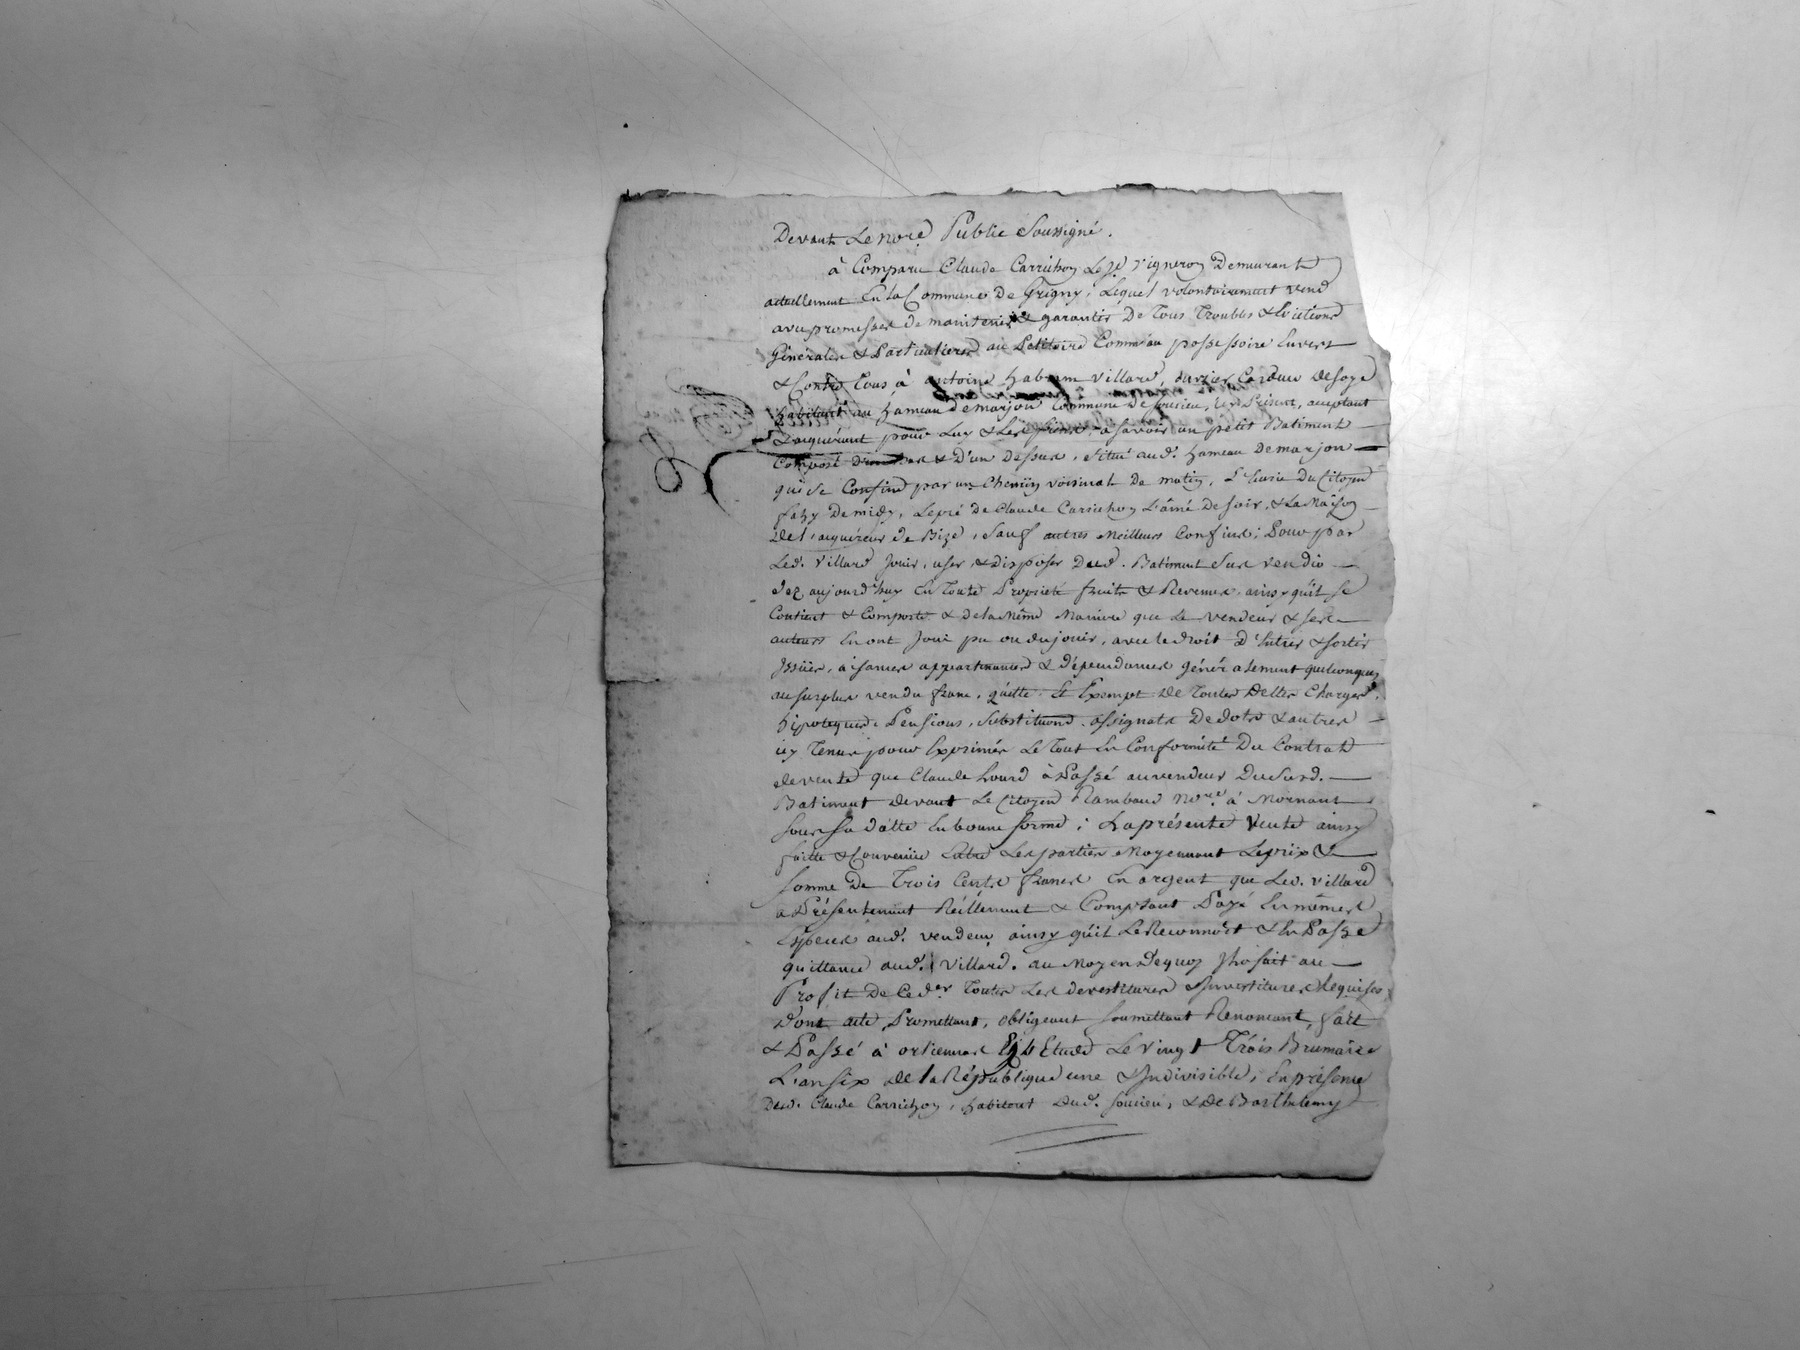 Devant Le no.re Public Soussigné.
à Comparu Claude Carrichon Le j.e Vigneron Demeurant
actuellement En la Commune de Grigny, Lequel volontairement vend
avec promesses de maintenir & garantir De Tous Troubles & Evictions
Générales & Particulieres au Petitoire Comme au possessoire Envers
& Contre Tous à antoine villard, ouvrier Cardeur de soye
habitant au hameau demarjon Commune de soucieu, icy Présent, acceptant
& acquérant pour Luy & Les siens, à savoir un petit Batiment
Composé & D'un Dessus, situé aud. hameau Demarjon
qui se Confine par un Chemin voisinal de matin, du Citoyen
De midy, Le pré De Claude Carrichon L'ainé de soir, & La Maison
De L'acquéreur de Bize, sauf autres Meilleurs Confins; Pour par
Led. Villard Jouir, user, & Disposer Dud. Batiment Sus vendu
dez aujourd'huy En Toute Propriété fruits & Revenus, ainsy qu'il se
Contient & Comporte & de la Même Maniere que Le vendeur & ses
auteurs En ont Joui pu ou du jouir, avec le droit D'Entrer & sortir
Issües, aisances appartenances & dépendances généralement quelconques
au surplus vendu franc, quitte & Exempt De Toutes Dettes Charges,
hipoteques, Pensions, Substitutions, assignats De dots & autres
icy Tenus pour Exprimés Le Tout En Conformité Du Contrat
de vente que Claude à Passé au vendeur Dusud.
Batiment devant Le Citoyen Rambaud No.re à Mornant
sous sa datte En bonne forme; La présente Vente ainsy
faitte & Convenüe Entre Les parties Moyennant Le prix &
somme De Trois Cents francs En argent que Led. Villard
a Présentement Réellement & Comptant Payé En mêmes
Especes aud. vendeur, ainsy qu'il Le Reconnoit & En Passe
quittance aud. Villard. au Moyen Dequoy Il a fait au
Profit De Ce d.er Toutes Les devestitures & Investitures Requises,
Dont acte, Promettant, obligeant Soumettant Renoncant, fait
& Passé à orlienas En L'Etude Le vingt Trois Brumaire
L'an six de la République une & Indivisible, En présence
Dud. Claude Carrichon, habitant Dud. soucieu, & de Barthelemy